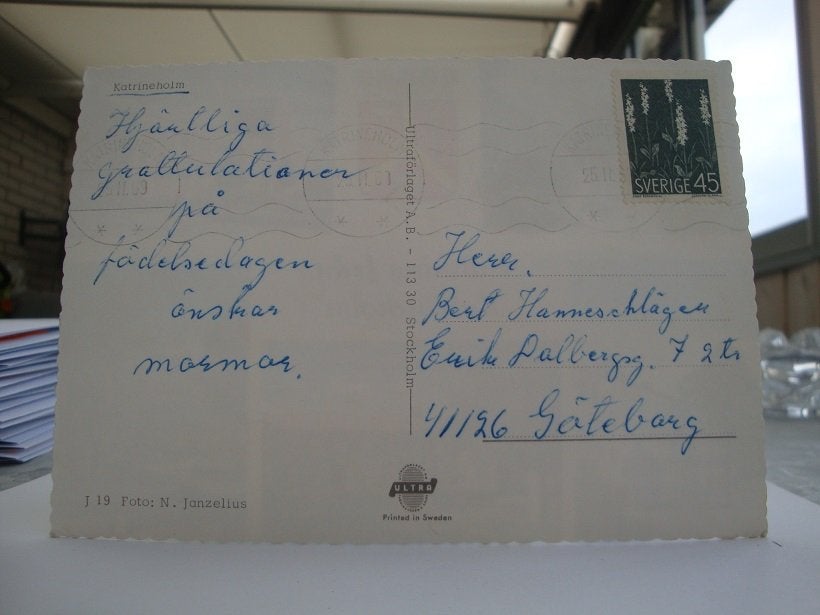 Katrineholm
Hjärtliga
gratulationer
på
födelsedagen
önskar
mormor.
J 19 Foto: N. Janzelius
Ultraförlaget A.B. - 113 30 Stockholm
ULTRA
Printed in Sweden
SVERIGE 45
Herr.
Bert Hanneschläger
Erik Dalbergsg. 7 2 tr
41126 Göteborg